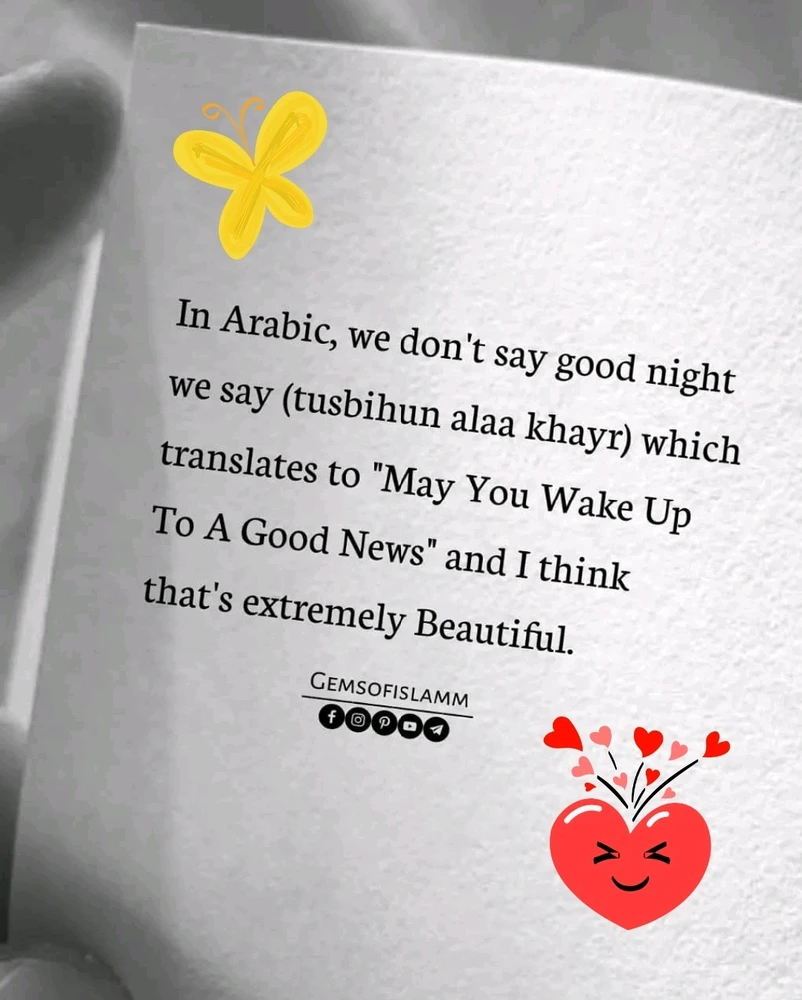 In Arabic, we don't say good night
we say (tusbihun alaa khayr) which
translates to "May You Wake Up
To A Good News" and I think
that's extremely Beautiful.
GEMSOFISLAMM